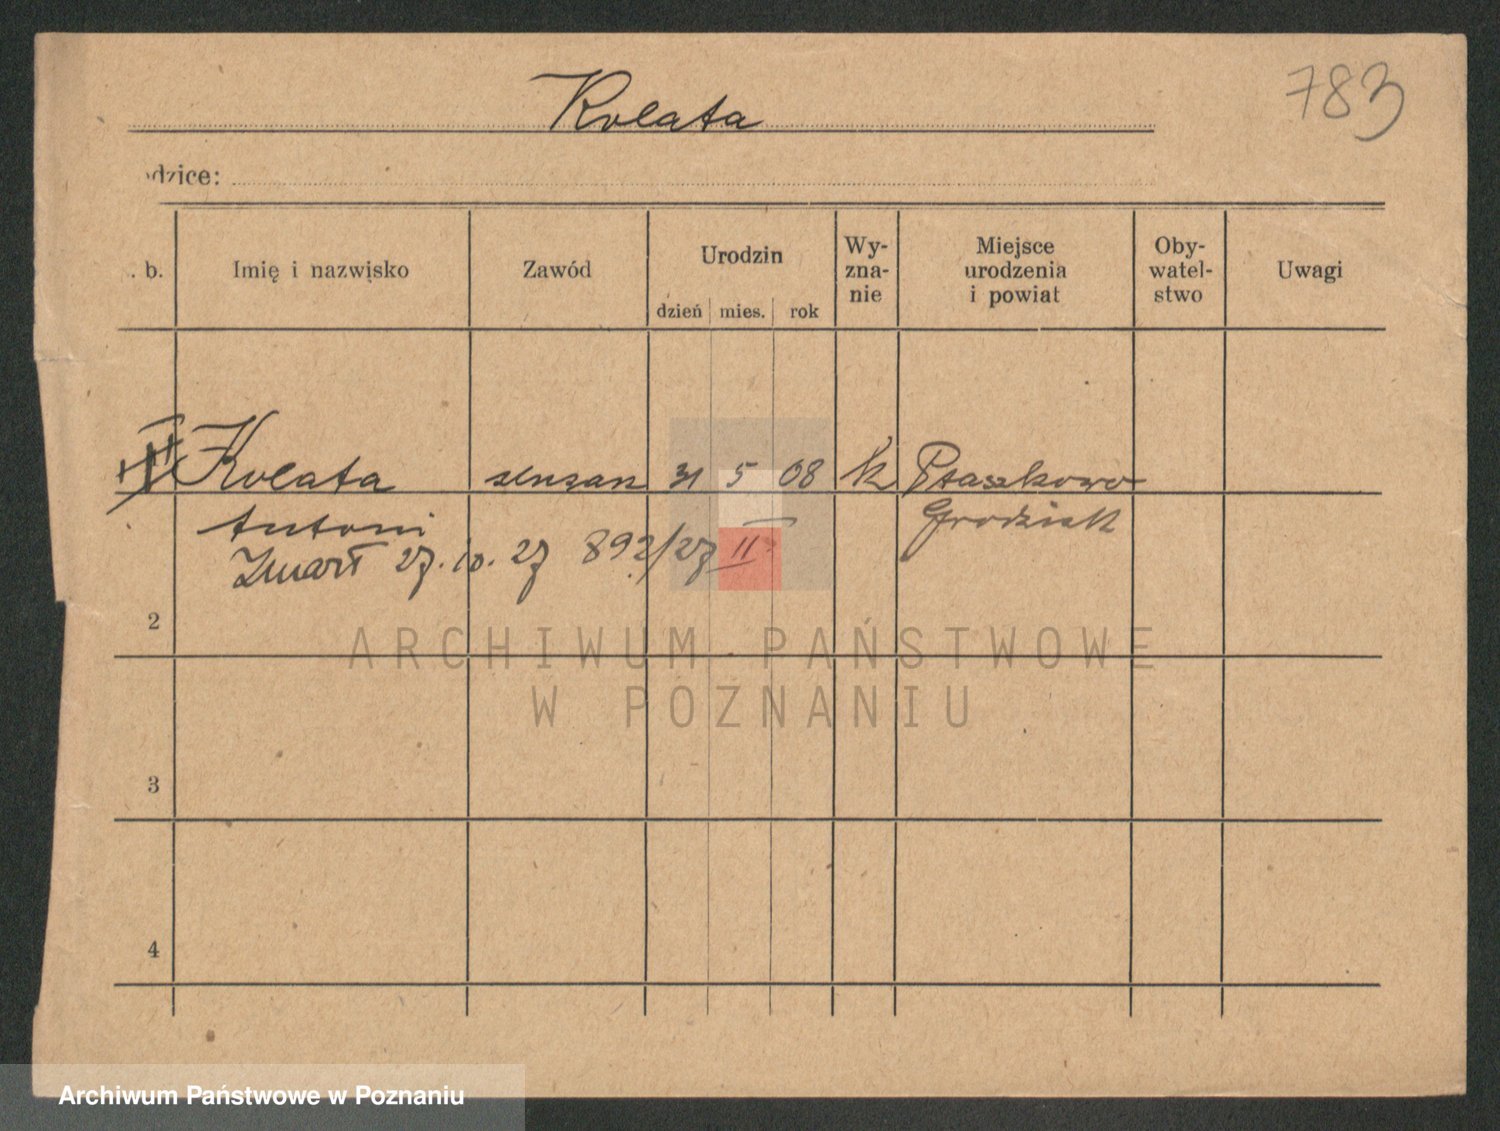 783
Kolata
odzice:
. b.
Imię i nazwisko
Zawód
Urodzin
dzień mies. rok
Wy-
zna-
nie
Miejsce
urodzenia
i powiat
Oby-
watel-
stwo
Uwagi
Kolata ślusarz 31 5 08 k Ptaszkowo
Antoni Grodzisk
Zmarł 27.10.27 892/27 II
2
3
4
ARCHIWUM PAŃSTWOWE
W POZNANIU
Archiwum Państwowe w Poznaniu